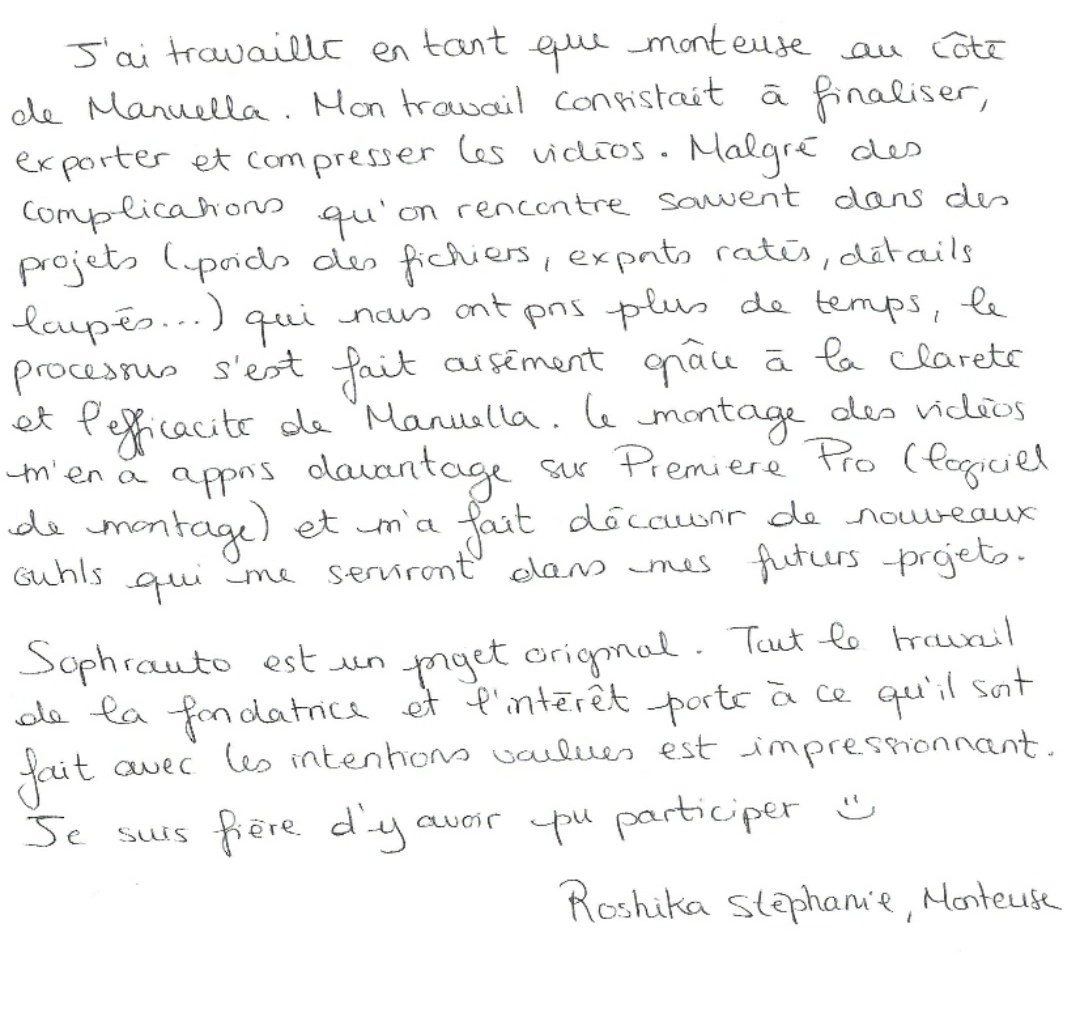 J'ai travaillé en tant que monteuse au côté
de Manuella. Mon travail consistait à finaliser,
exporter et compresser les vidéos. Malgré des
complications qu'on rencontre souvent dans des
projets (poids des fichiers, exports ratés, détails
loupés...) qui nous ont pris plus de temps, le
processus s'est fait aisément grâce à la clareté
et l'efficacité de Manuella. Le montage des vidéos
m'en a appris davantage sur Premiere Pro (logiciel
de montage) et m'a fait découvrir de nouveaux
outils qui me serviront dans mes futurs projets.
Sophrauto est un projet original. Tout le travail
de la fondatrice et l'intérêt porté à ce qu'il soit
fait avec les intentions voulues est impressionnant.
Je suis fière d'y avoir pu participer
Roshika Stéphanie, Monteuse